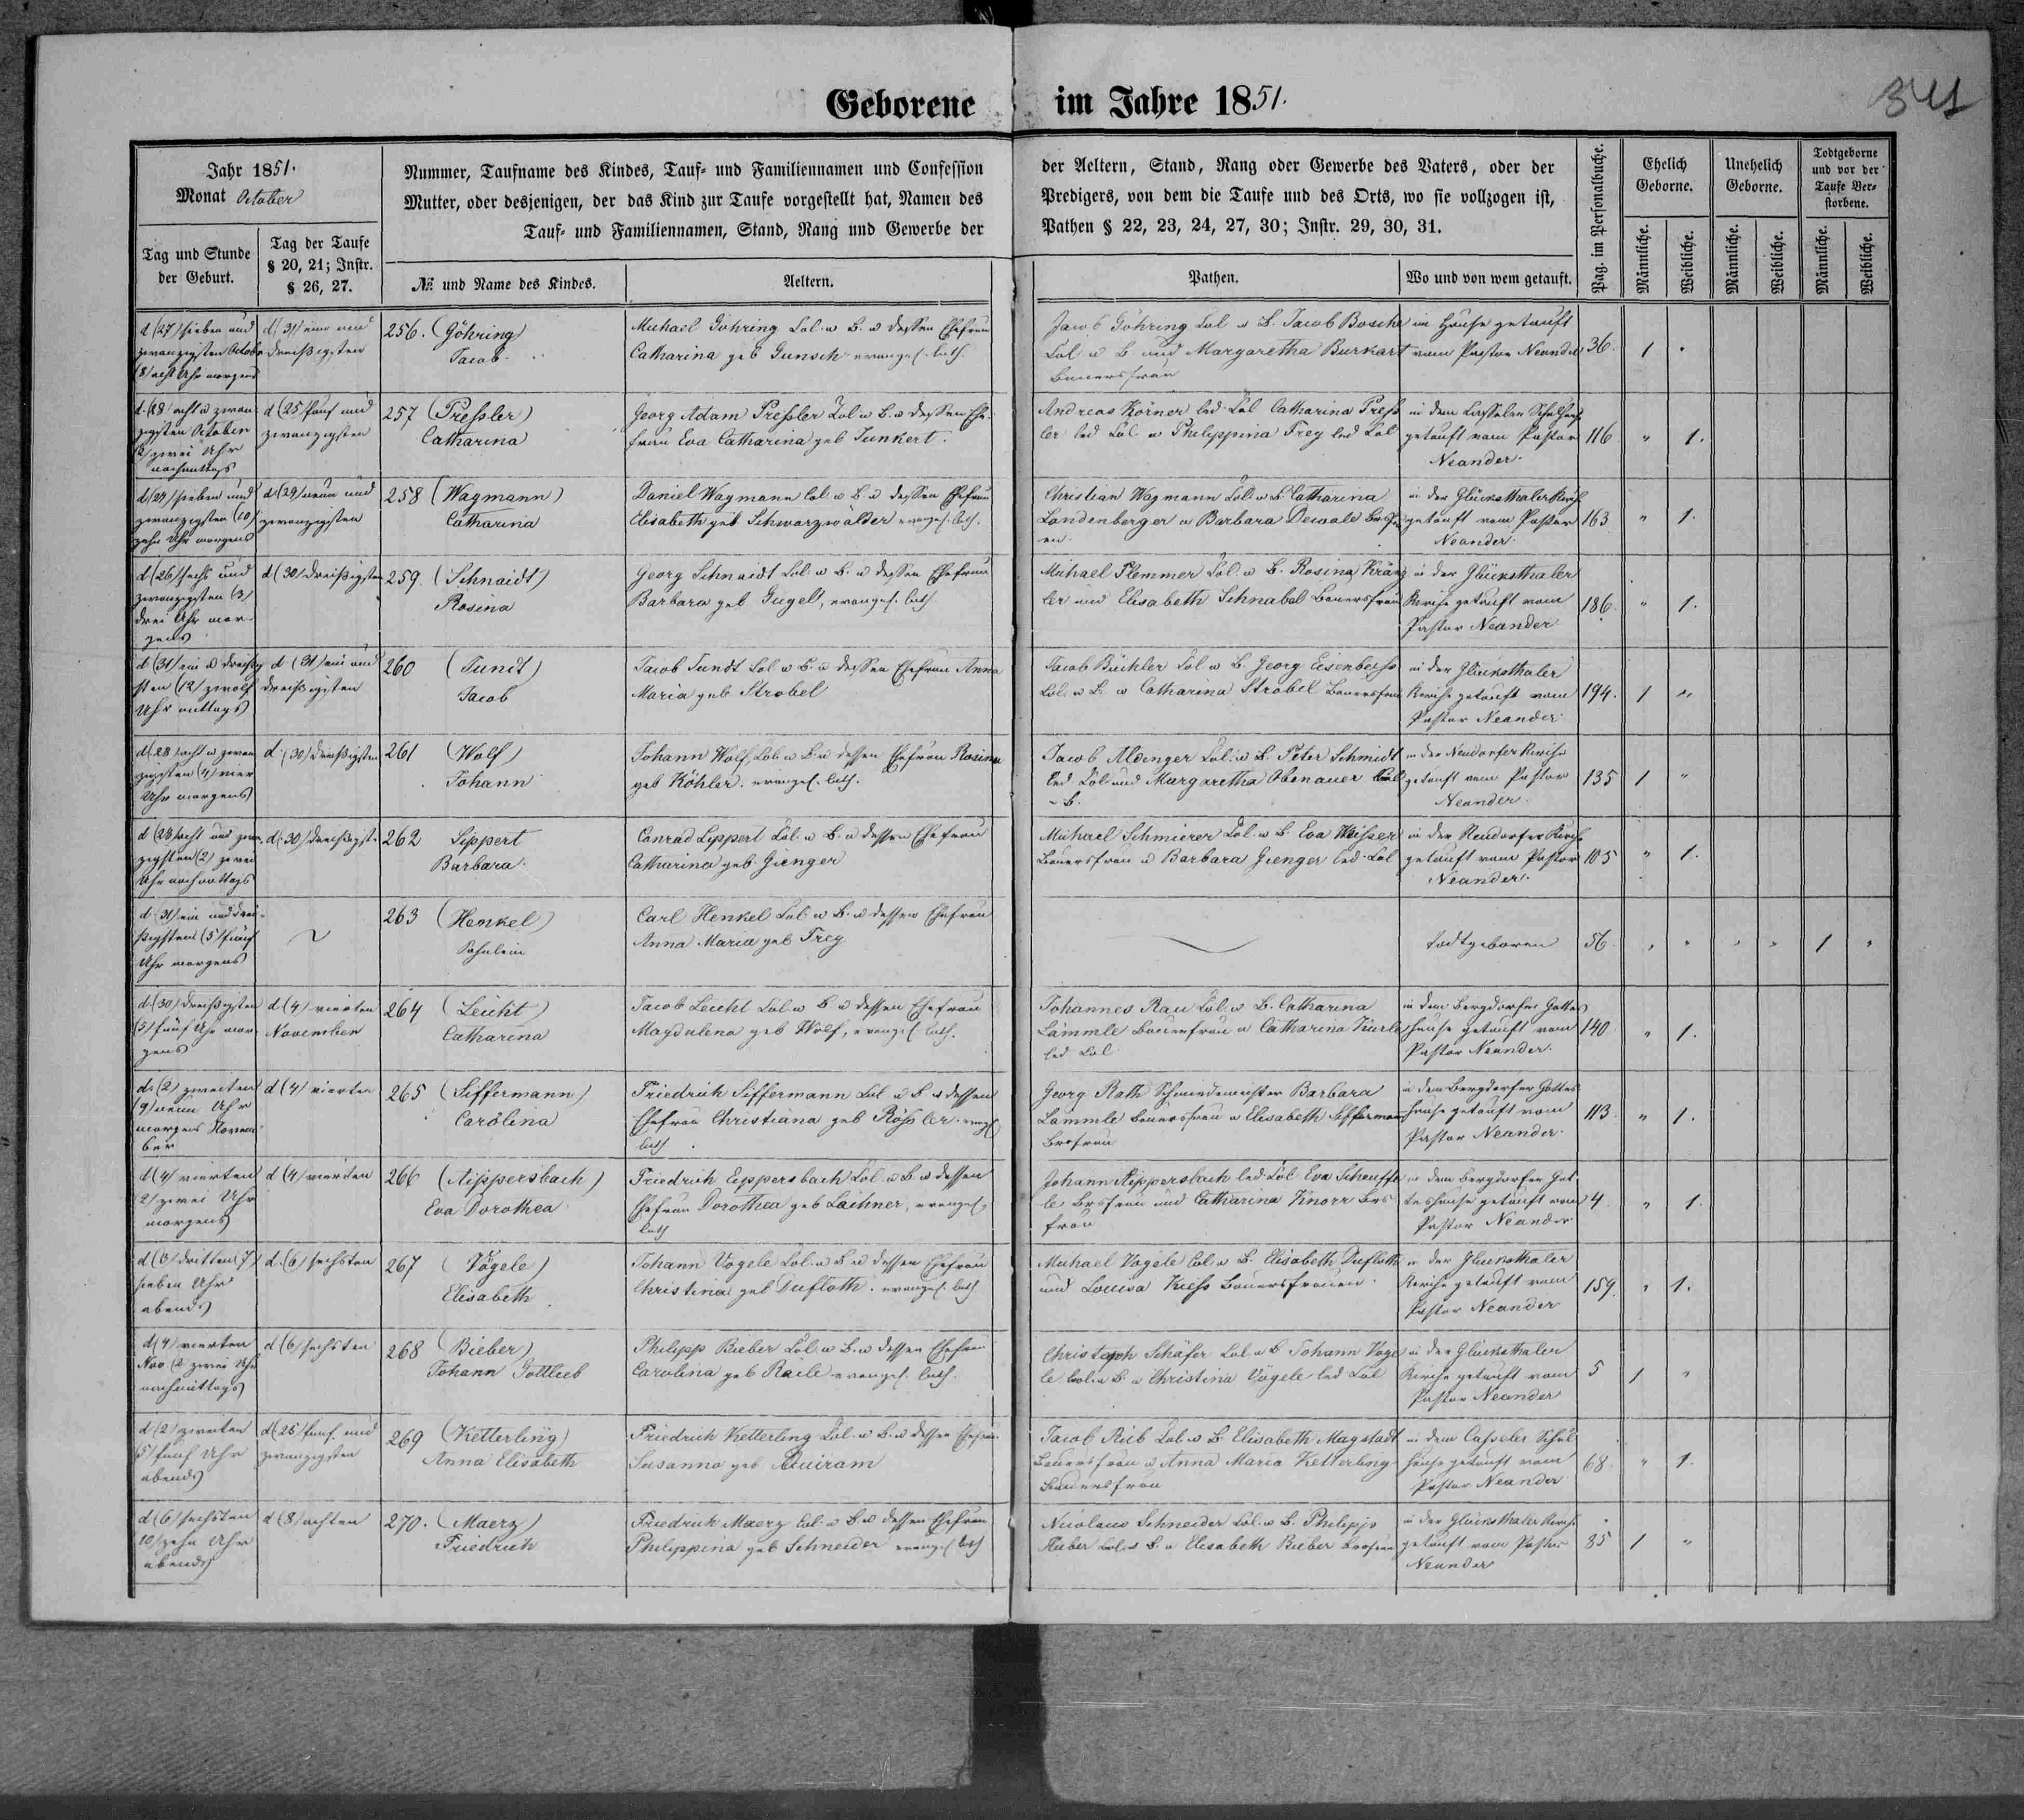 Geborene im Jahre 1851.
341
Jahr 1851.
Monat October
Nummer, Taufname des Kindes, Tauf- und Familiennamen und Confession
Mutter, oder desjenigen, der das Kind zur Taufe vorgestellt hat, Namen des
Tauf- und Familiennamen, Stand, Rang und Gewerbe der
der Aeltern, Stand, Rang oder Gewerbe des Vaters, oder der
Predigers, von dem die Taufe und des Orts, wo sie vollzogen ist,
Pathen § 22, 23, 24, 27, 30; Instr. 29, 30, 31.
Pag. im Personalbuche.
Ehelich
Geborne.
Unehelich
Geborne.
Todtgeborne
und vor der
Taufe Ver-
storbene.
Tag und Stunde
der Geburt.
Tag der Taufe
§ 20, 21; Instr.
§ 26, 27.
№ und Name des Kindes.
Aeltern.
Pathen.
Wo und von wem getauft.
Männliche.
Weibliche.
Männliche.
Weibliche.
Männliche.
Weibliche.
d (27) sieben und
zwanzigsten October
(8) acht Uhr morgens
d (31) ein und
dreißigsten
256. (Göhring)
Jacob
Michael Göhring Col. u B. u dessen Ehefrau
Catharina geb Gunsch evangel. luth.
Jacob Göhring Col u B. Jacob Bosche
Col u B und Margaretha Burkart
Bauersfrau
im Hause getauft
vom Pastor Neander
36. 1
d. (28) acht u zwan
zigsten October
(2) zwei Uhr
nachmittags
d (25) fünf und
zwanzigsten
257 (Pressler)
Catharina
Georg Adam Pressler Col u B. u dessen Ehe-
frau Eva Catharina geb Junkert.
Andreas Körner led Col Catharina Press
ler led Col u Philippina Frey led Col
in dem Casseler Schulhause
getauft vom Pastor
Neander.
116 " 1.
d (27) sieben und
zwanzigsten (10)
zehn Uhr morgens
d (29) neun und
zwanzigsten
258 (Wagmann)
Catharina
Daniel Wagmann Col u B. u dessen Ehefrau
Elisabeth geb Schwarzwälder evangel. luth.
Christian Wagmann Col. u B. Catharina
Landenberger u Barbara Dewald
in der Glücksthaler Kirche
getauft vom Pastor
Neander.
163 " 1.
d (26) sechs und
zwanzigsten (3)
drei Uhr mor-
gens
d (30) dreißigsten
259. (Schnaidt)
Rosina
Georg Schnaidt Col. u B. u dessen Ehefrau
Barbara geb Gugel, evangel. luth
Michael Flemmer Col. u B. Rosina Kränz
ler und Elisabeth Schnabel Bauersfrau
in der Glücksthaler
Kirche getauft vom
Pastor Neander
186. " 1.
d (31) ein u dreißig
sten (12) zwölf
Uhr mittags
d (31) ein und
dreißigsten
260 (Tundt)
Jacob
Jacob Tundt Col u B. u dessen Ehefrau Anna
Maria geb Strobel
Jacob Büchler Col u B. Georg Eisenbeiss
Col. u B u Catharina Strobel Bauersfrau
in der Glücksthaler
Kirche getauft vom
Pastor Neander
194. 1 "
d (28) acht u zwan
zigsten (4) vier
Uhr morgens
d. (30) dreißigsten
261 (Wolf)
Johann
Johann Wolf, Col. u B. u dessen Ehefrau Rosina
geb Köhler. evangel. luth.
Jacob Aldinger Col. u B. Peter Schmidt
led Col und Margaretha Obenauer Col
u B.
in der Neudorfer Kirche
getauft vom Pastor
Neander.
135 1 "
d (28) acht und zwan
zigsten (2) zwei
Uhr nachmittags
d. (30) dreißigsten
262 Lippert
Barbara
Conrad Lippert Col. u B. u dessen Ehefrau
Catharina geb. Gienger
Michael Schmierer Col. u B. Eva Weisser
Bauersfrau u Barbara Gienger led. Col
in der Neudorfer Kirche
getauft vom Pastor
Neander.
105 " 1.
d. (31) ein und drei-
ßigsten (5) fünf
Uhr morgens
263 (Henkel)
Söhnlein
Carl Henkel Col u B. u dessen Ehefrau
Anna Maria geb Frey
todtgeboren
56. " " " " 1 "
d (30) dreißigsten
(5) fünf Uhr mor-
gens
d (4) vierten
November
264 (Leicht)
Catharina
Jacob Leicht Col. u B. u dessen Ehefrau
Magdalena geb Wolf, evangel luth.
Johannes Rau Col. u B. Catharina
Lämmle Bauersfrau u Catharina
led Col
in dem Bergdorfer Gottes
hause getauft vom
Pastor Neander.
140 " 1.
d. (2) zweiten
(9) neun Uhr
morgens Novem
ber
d (4) vierten
265 (Siffermann)
Carolina
Friedrich Siffermann Col u B u dessen
Ehefrau Christiana geb Rössler. evangel
luth
Georg Rath Schmiedemeister Barbara
Lämmle Bauersfrau u Elisabeth Siffermann
Brsfrau
in dem Bergdorfer Gottes
hause getauft vom
Pastor Neander.
113. " 1.
d (4) vierten
(2) zwei Uhr
morgens
d (4) vierten
266 (Aippersbach)
Eva Dorothea
Friedrich Eppersbach Col u B. u dessen
Ehefrau Dorothea geb Laitner, evangel.
luth
Johann Aippersbach led Col Eva Scheuffe
le Brsfrau und Catharina Knorr Brs
frau
in dem Bergdorfer Got
teshause getauft vom
Pastor Neander
4 " 1.
d (3) dritten (7)
sieben Uhr
abends
d. (6) sechsten
267 (Vögele)
Elisabeth
Johann Vögele Col. u B. u dessen Ehefrau
Christina geb Dufloth. evangel. luth
Michael Vögele Col. u B. Elisabeth Dufloth
und Louisa Kiess Bauersfrauen.
in der Glücksthaler
Kirche getauft vom
Pastor Neander
159. " 1.
d (4) vierten
Nov. (2) zwei Uhr
nachmittags
d (6) sechsten
268 (Bieber)
Johann Gottlieb
Philipp Bieber Col. u B. u dessen Ehefrau
Carolina geb Raile evangel. luth.
Christoph Schäfer Col. u B Johann Vöge
le Col. u B. u Christina Vögele led Col
in der Glücksthaler
Kirche getauft vom
Pastor Neander
5 1 "
d (2) zweiten
(5) fünf Uhr
abends
d (25) fünf und
zwanzigsten
269 (Ketterling)
Anna Elisabeth
Friedrich Ketterling Col. u B. u dessen Ehefrau.
Susanna geb Quiram
Jacob Rieb Col. u B Elisabeth Magstadt
Bauersfrau u Anna Maria Ketterling
Bauersfrau
in dem Casseler Schul
hause getauft vom
Pastor Neander
68. " 1.
d (6) sechsten
(10) zehn Uhr
abends
d (8) achten
270. (Maerz)
Friedrich
Friedrich Maerz Col. u B u dessen Ehefrau
Philippina geb Schneider evangel luth
Nicolaus Schneider Col. u B. Philipp
Bieber Col. u B. u Elisabeth Bieber Brsfrau
in der Glücksthaler Kirche
getauft vom Pastor
Neander
85 1 "